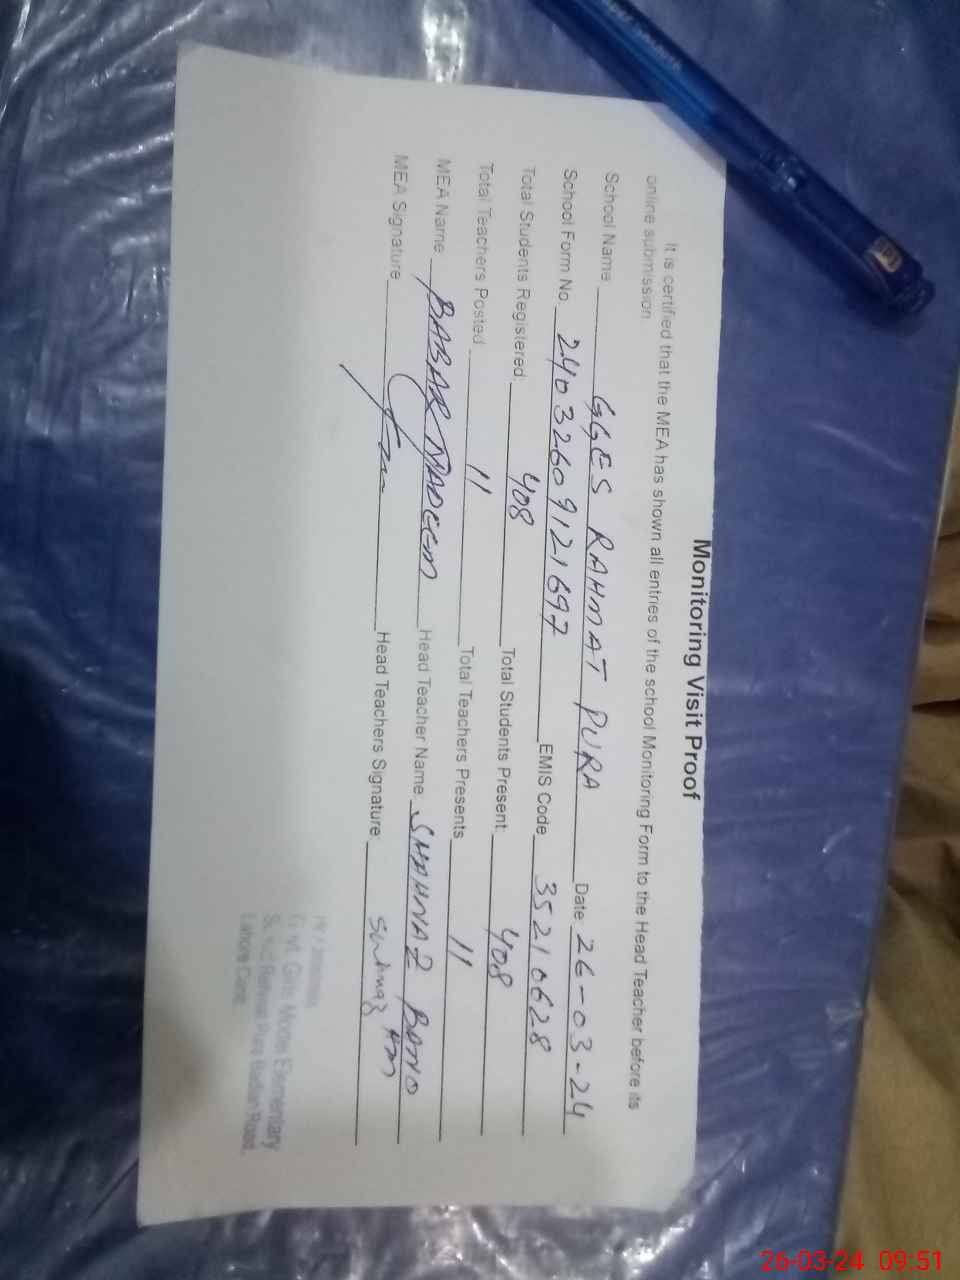 Monitoring Visit Proof
It is certified that the MEA has shown all entries of the school Monitoring Form to the Head Teacher before its
online submission
School Name GGES RAHMAT PURA Date 26-03-24
School Form No. 24032609121697 EMIS Code 35210628
Total Students Registered 408 Total Students Present 408
Total Teachers Posted 11 Total Teachers Presents 11
MEA Name BABAR NADEEM Head Teacher Name SHAHNAZ BANO
MEA Signature Head Teachers Signature Shahnaz
Govt. Girls Elementary
School Rehmat Pura Badian Road,
Lahore Cantt.
26-03-24 09:51